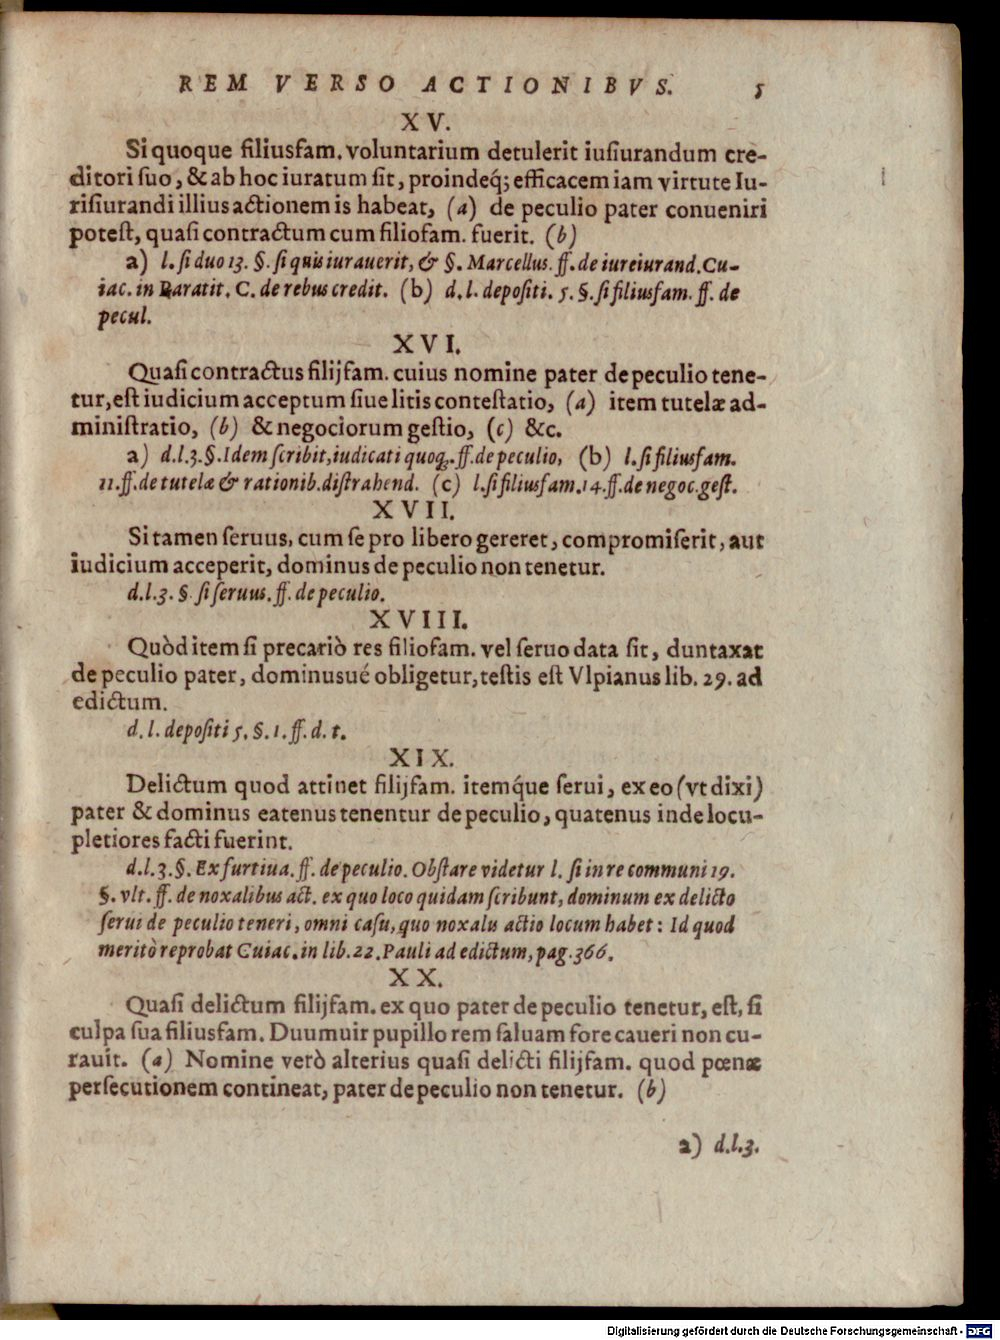 REM VERSO ACTIONIBVS. 5
XV.
Si quoque filiusfam. voluntarium detulerit iusiurandum cre-
ditori suo, & ab hoc iuratum sit, proindeq́; efficacem iam virtute Iu-
risiurandi illius actionem is habeat, (a) de peculio pater conueniri
potest, quasi contractum cum filiofam. fuerit. (b)
a) l. si duo 13. §. si quis iurauerit, & §. Marcellus. ff. de iureiurand. Cu-
iac. in Paratit. C. de rebus credit. (b) d. l. depositi. 5. §. si filiusfam. ff. de
pecul.
XVI.
Quasi contractus filijfam. cuius nomine pater de peculio tene-
tur, est iudicium acceptum siue litis contestatio, (a) item tutelæ ad-
ministratio, (b) & negociorum gestio, (c) &c.
a) d.l.3.§. Idem scribit, iudicati quoq. ff. de peculio, (b) l. si filiusfam.
11. ff. de tutelæ & rationib. distrahend. (c) l. si filiusfam. 14. ff. de negoc. gest.
XVII.
Si tamen seruus, cum se pro libero gereret, compromiserit, aut
iudicium acceperit, dominus de peculio non tenetur.
d.l.3. § si seruus. ff. de peculio.
XVIII.
Quòd item si precariò res filiofam. vel seruo data sit, duntaxat
de peculio pater, dominusué obligetur, testis est Vlpianus lib. 29. ad
edictum.
d. l. depositi 5. §. 1. ff. d. t.
XIX.
Delictum quod attinet filijfam. itemq́ue serui, ex eo (vt dixi)
pater & dominus eatenus tenentur de peculio, quatenus inde locu-
pletiores facti fuerint.
d.l.3. §. Ex furtiua. ff. de peculio. Obstare videtur l. si in re communi 19.
§. vlt. ff. de noxalibus act. ex quo loco quidam scribunt, dominum ex delicto
serui de peculio teneri, omni casu, quo noxalis actio locum habet: Id quod
meritò reprobat Cuiac. in lib. 22. Pauli ad edictum, pag. 366.
XX.
Quasi delictum filijfam. ex quo pater de peculio tenetur, est, si
culpa sua filiusfam. Duumuir pupillo rem saluam fore caueri non cu-
rauit. (a) Nomine verò alterius quasi delicti filijfam. quod pœnæ
persecutionem contineat, pater de peculio non tenetur. (b)
a) d.l.3.
Digitalisierung gefördert durch die Deutsche Forschungsgemeinschaft - DFG